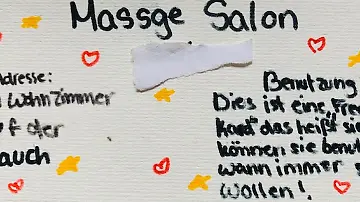 Massge Salon
Adresse:
Wohnzimmer
f der
auch
Benutzung
Dies ist eine
das heißt
können sie
wann immer
wollen!